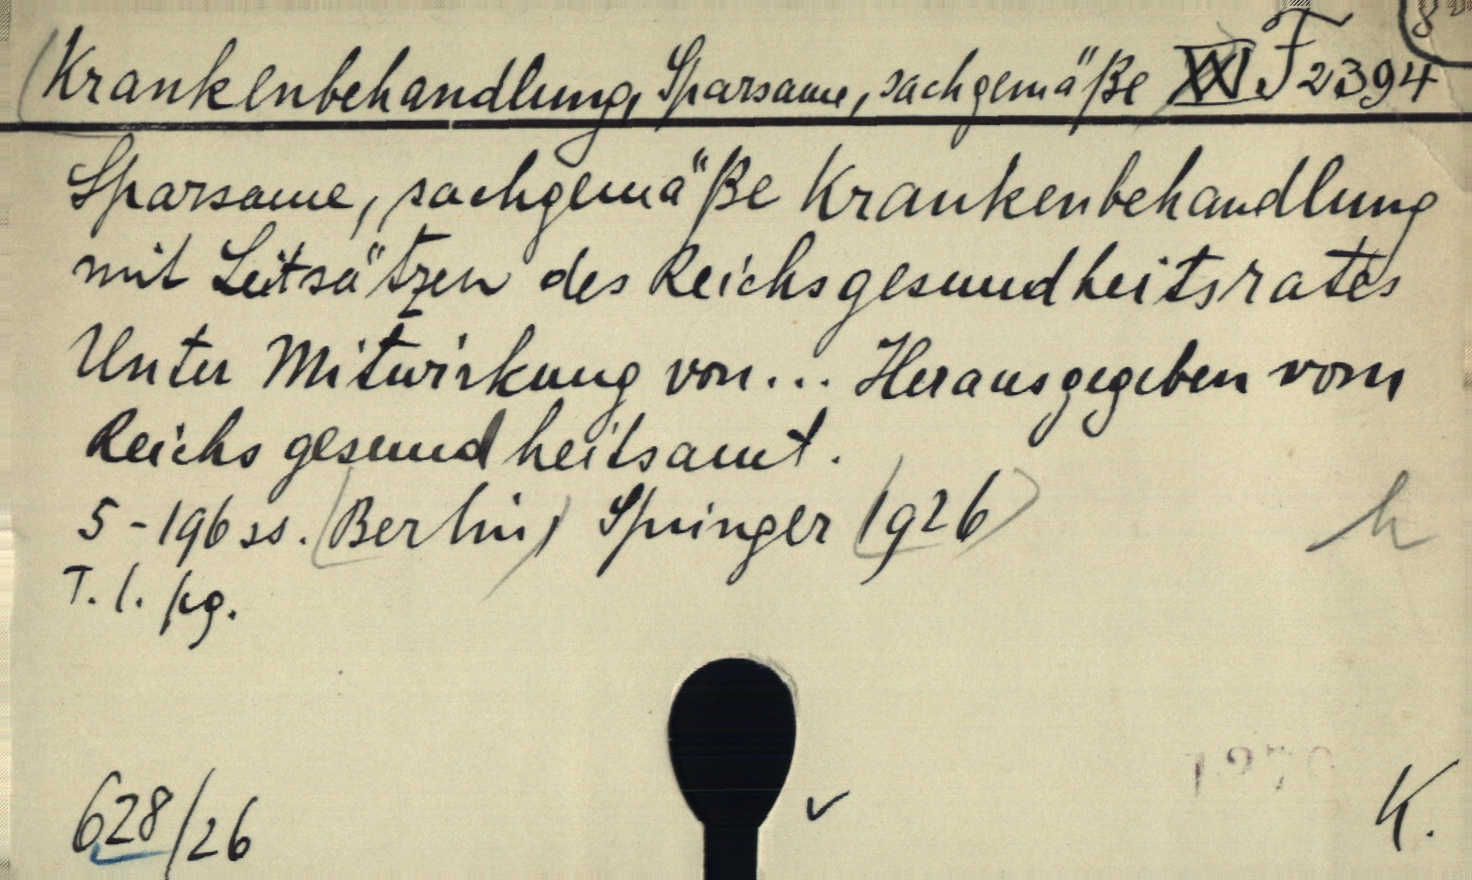 Krankenbehandlung, Sparsame, sachgemäße F 2394
Sparsame, sachgemäße Krankenbehandlung
mit Leitsätzen des Reichsgesundheitsrates
Unter Mitwirkung von... Herausgegeben vom
Reichsgesundheitsamt.
5-196 ss. (Berlin) Springer (1926)
h
T. l. pg.
628/26
K.